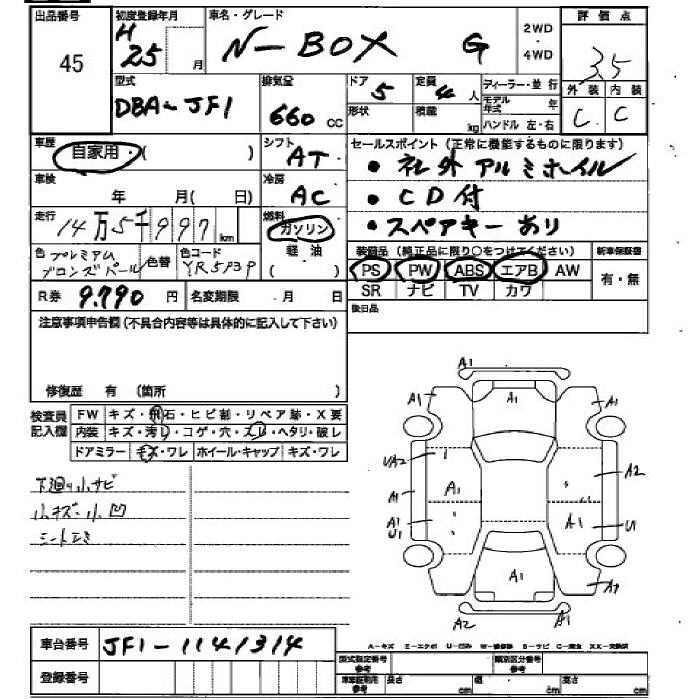 出品番号 初度登録年月 車名・グレード 2WD・4WD 評価点
45 H 25 月 N-BOX G 3.5
型式 排気量 ドア 定員 ディーラー・並行 外装 内装
DBA-JF1 660 CC 5 4 人 モデル年式 年 C C
形状 積蔵 kg ハンドル 左・右
車歴 シフト セールスポイント(正常に機能するものに限ります)
自家用・( ) AT ・社外アルミホイル
車検 年 月( 日) 冷房 AC ・CD付
走行 14万5千997 km 燃料 ガソリン 軽油 ・スペアキーあり
色 プレミアムブロンズパール 色替 色コード YR5P3P
装備品(純正品に限り○をつけてください) 新車保証書
PS PW ABS エアB AW 有・無
SR ナビ TV カワ
R券 9.790 円 名変期限 ・ 月 日 後日品
注意事項申告欄(不具合内容等は具体的に記入して下さい)
修復歴 有 (箇所 )
検査員記入欄 FW キズ・飛石・ヒビ割・リペア跡・X要
内装 キズ・汚レ・コゲ・穴・スレ・ヘタリ・破レ
ドアミラー キズ・ワレ ホイール・キャップ キズ・ワレ
下廻り小サビ
小キズ・小凹
A1
A1 A1 A1
UA2 A1 A2
A1
A1 U1 A1 U1
A1 A1
A2 A1
車台番号 JF1-1141314
登録番号
A-キズ E-エクボ U-凹み W-補修跡 S-サビ C-腐食 XX-交換済
型式指定番号 参考 類別区分番号 参考
車庫証明用 参考 長さ cm 幅 cm 高さ cm